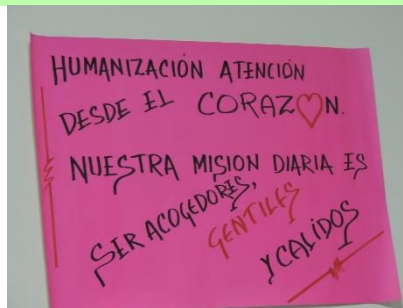 HUMANIZACIÓN ATENCIÓN
DESDE EL CORAZ♡N.
NUESTRA MISION DIARIA ES
SER ACOGEDORES,
GENTILES
Y CALIDOS